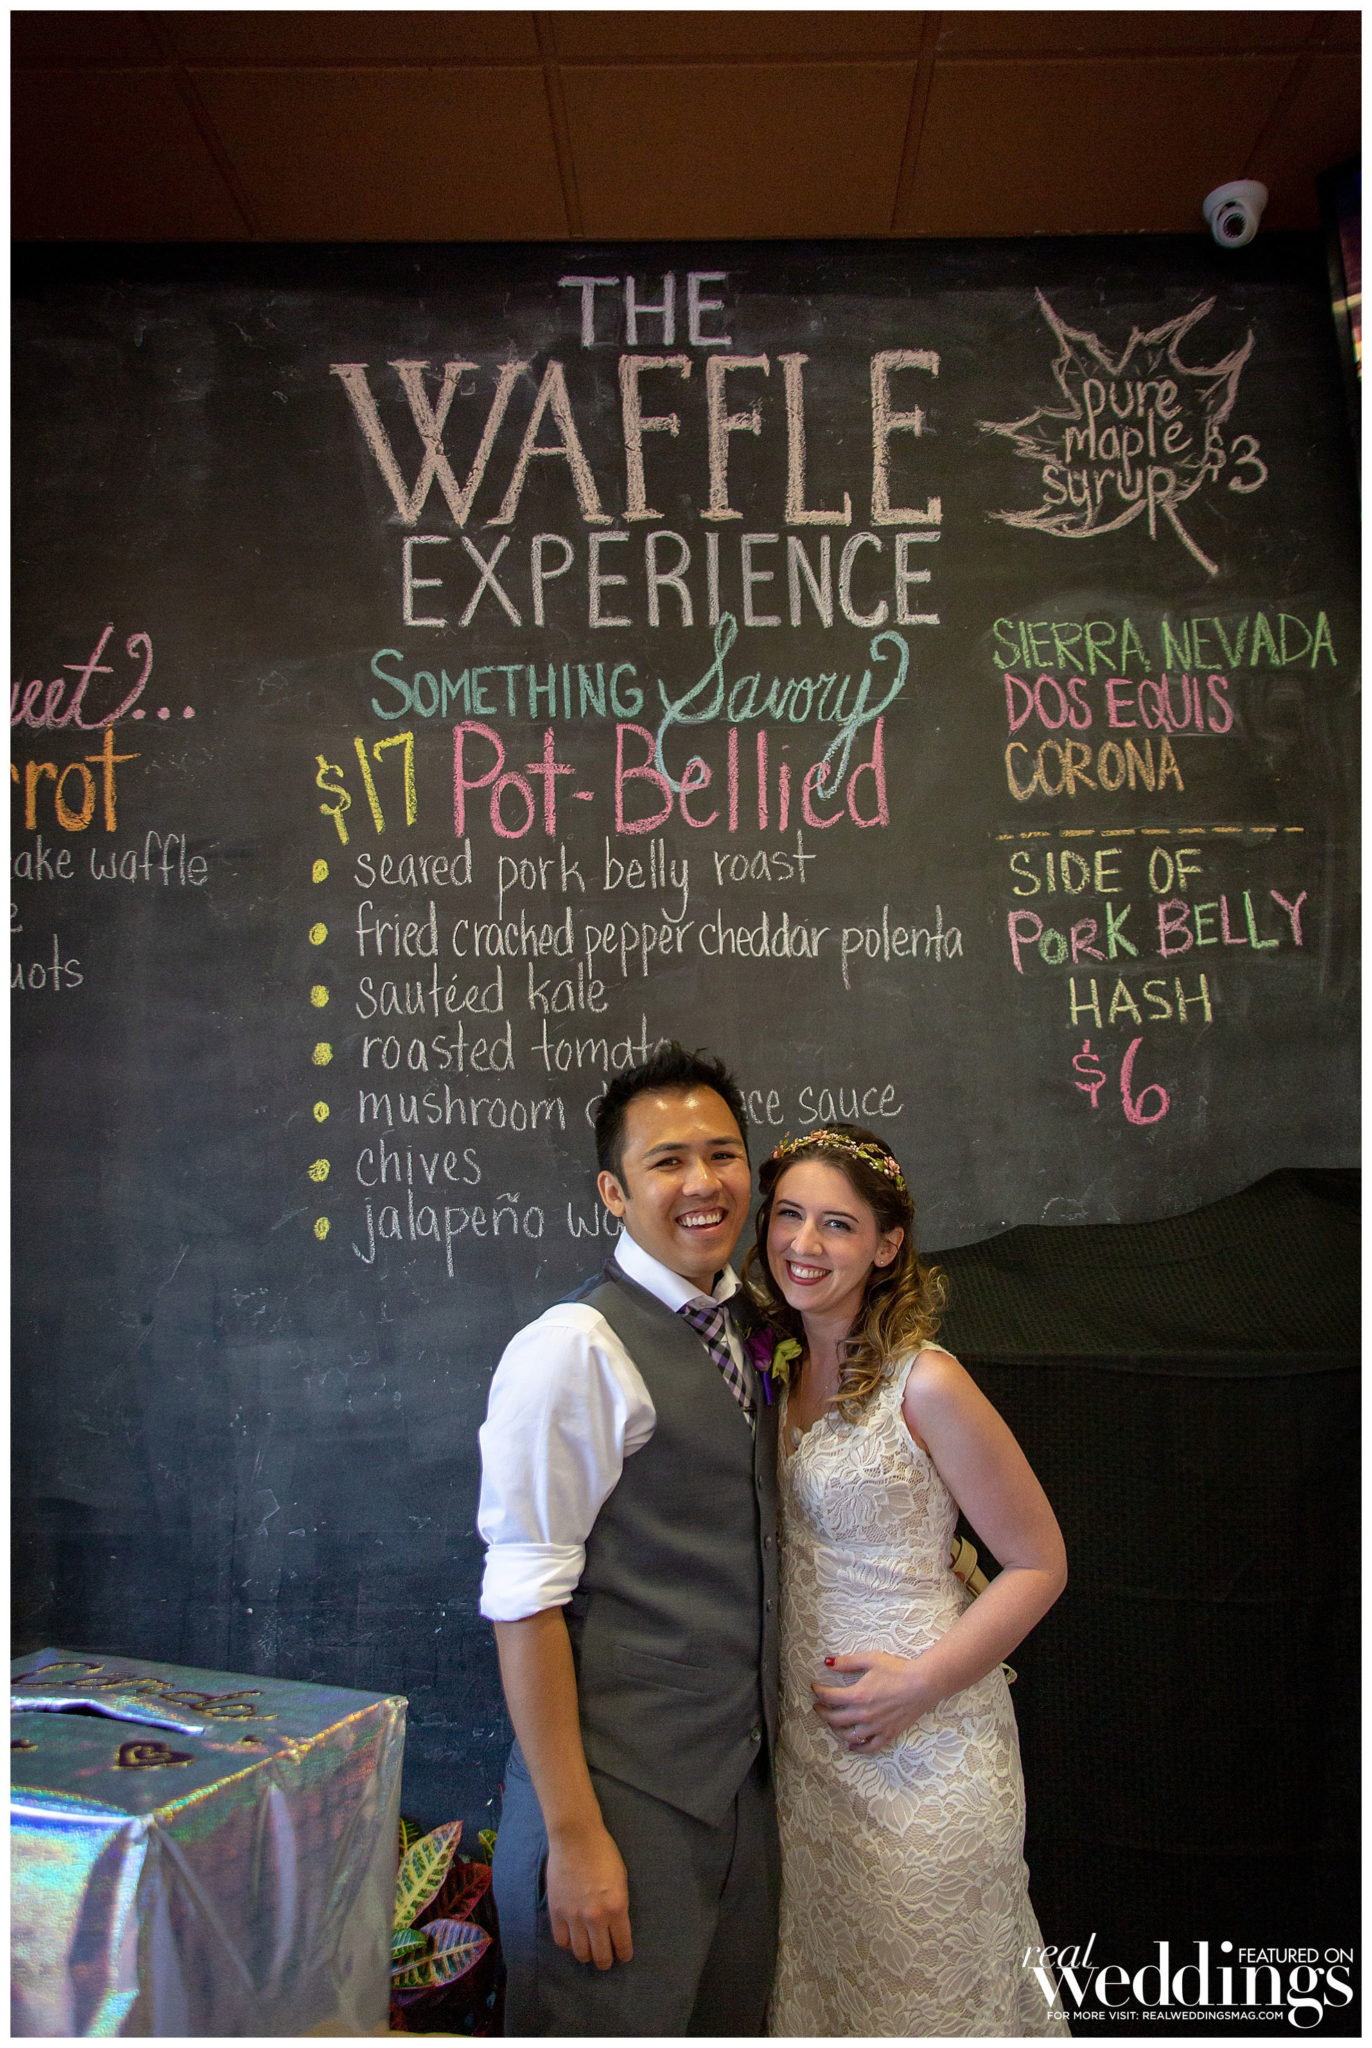 THE
WAFFLE
EXPERIENCE
pure
maple
syrup $3
SOMETHING Savory
$17 Pot-Bellied
• seared pork belly roast
• fried cracked pepper cheddar polenta
• sautéed kale
• roasted tomato
• mushroom sauce
• chives
• jalapeño
...
waffle
SIERRA NEVADA
DOS EQUIS
CORONA
SIDE OF
PORK BELLY
HASH
$6
Cards
real weddings
FEATURED ON
FOR MORE VISIT: REALWEDDINGSMAG.COM